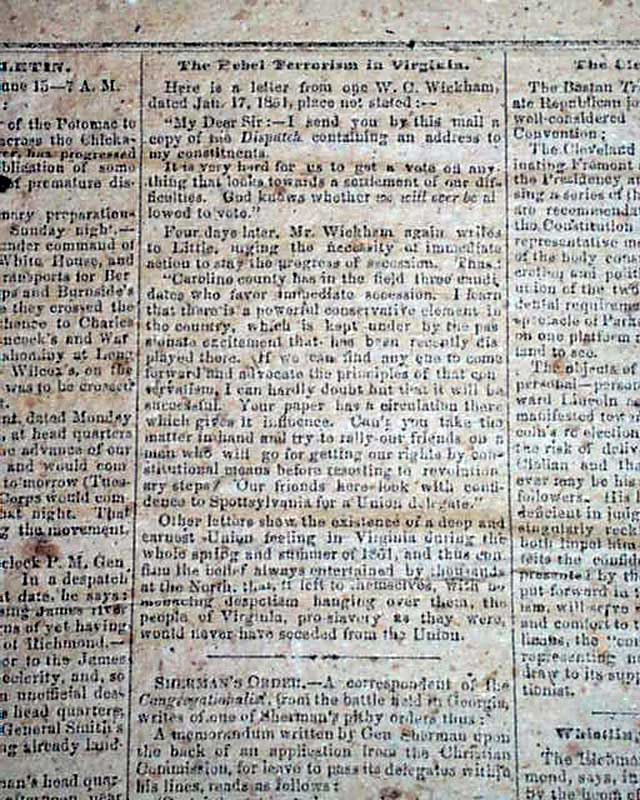 LETIN.
une 15—7 A. M.
of the Potomac to
across the Chicka-
has progressed
blication of some
of premature dis-
nary preparations
Sunday night.—
under command of
White House, and
transports for Ber
ps and Burnside's
e they crossed the
thence to Charles
ncock's and War
ahominy at Long
Wilcox's, on the
was to be crossed
nt, dated Monday
, at head quarters
he advance of our
and would com
to morrow (Tues-
Corps would com
hat night. That
g the movement.
clock P. M. Gen
In a despatch
at date, he says:
sing James river
ns of yet having
of Richmond.—
or to the James
celerity, and, so
n unofficial des-
s head quarters,
General Smith's
ng already land-
an's head quar-
The Rebel Terrorism in Virginia.
Here is a letter from one W. C. Wickham,
dated Jan. 17, 1861, place not stated:—
"My Dear Sir:—I send you by this mail a
copy of the Dispatch containing an address to
my constituents.
It is very hard for us to get a vote on any-
thing that looks towards a settlement of our dif-
ficulties. God knows whether we will ever be al
lowed to vote."
Four days later, Mr. Wickham again writes
to Little, urging the necessity of immediate
action to stay the progress of secession. Thus:
"Caroline county has in the field three candi
dates who favor immediate secession. I learn
that there is a powerful conservative element in
the country, which is kept under by the pas
sionate excitement that has been recently dis
played there. If we can find any one to come
forward and advocate the principles of that con
servatism, I can hardly doubt but that it will be
successful. Your paper has a circulation there
which gives it influence. Can't you take the
matter in hand and try to rally our friends on a
man who will go for getting our rights by con-
stitutional means before resorting to revolution
ary steps? Our friends here look with confi-
dence to Spottsylvania for a Union delegate."
Other letters show the existence of a deep and
earnest Union feeling in Virginia during the
whole spring and summer of 1861, and thus con
firm the belief always entertained by thousands
at the North, that, if left to themselves, with no
menacing despotism hanging over them, the
people of Virginia, pro-slavery as they were,
would never have seceded from the Union.
SHERMAN'S ORDER.—A correspondent of the
Congregationalist, from the battle field in Georgia,
writes of one of Sherman's pithy orders thus:
A memorandum written by Gen Sherman upon
the back of an application from the Christian
Commission, for leave to pass its delegates within
his lines, reads as follows:
The Cle
The Boston Tr
ate Republican jo
well-considered
Convention;
The Cleveland
inating Fremont
the Presidency a
sing a series of th
are recommend
the Constitution
representative
of the body cons
ercting and polit
ution of the two
dential requireme
spectacle of Park
on one platform
land to see.
The objects of
personal—person
ward Lincoln a
manifested tow
coln's re election
the risk of deliv
Clellan and th
ever may be his
followers. His
deficient in judg
singularly reck
both impel him
feits the confid
presented by th
put forward in t
ism, will serve
and comfort to t
representing
draw to its supp
tionist.
Whistlin
The Richmon
mond, says, in